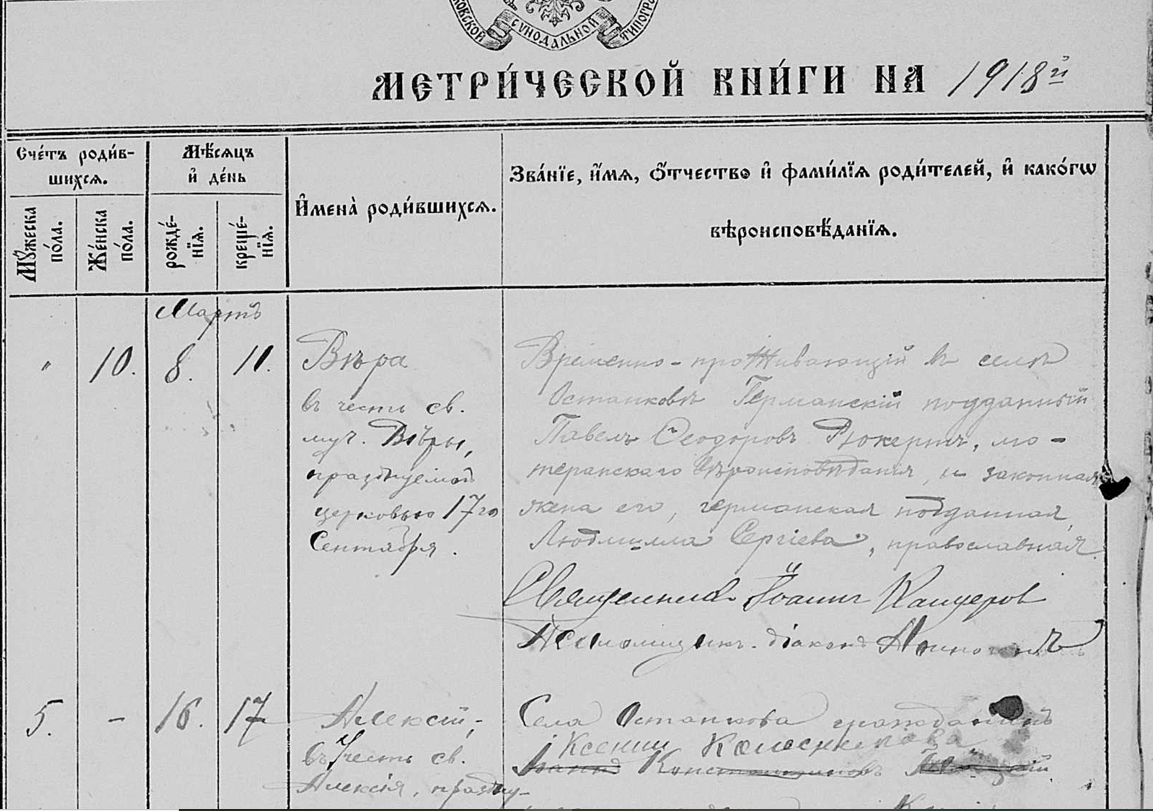 СѴНОДАЛЬНОЙ
МЕТРИ́ЧЕСКОЙ КНИ́ГИ НА 1918й
Сче́тъ роди́в-
шихсѧ.
Мѣ́сѧцъ
и҆ де́нь
И҆мена̀ роди́вшихсѧ.
Зва́нїе, и҆́мѧ, ѻ҆́тчество и҆ фами́лїѧ роди́телей, и҆ како́гѡ
вѣроисповѣ́данїѧ.
Мꙋ́жеска
по́ла.
Же́нска
по́ла.
рожде́-
нїѧ.
креще́-
нїѧ.
Мартъ
" 10. 8. 11. Вѣра
въ честь св.
муч. Вѣры,
празднуемой
церковью 17го
Сентября.
Временно-проживающій въ селѣ
Останковѣ Германскій подданный
Павелъ Ѳеодоровъ Рюкертъ, лю-
теранскаго вѣроисповѣданія, и законная
жена его, германская подданная,
Людмилла Сергіева, православная.
Священникъ Іоаннъ
Псаломщикъ-діаконъ
5. - 16. 17 Алексій,
въ честь св.
Алексія, праздну-
Села Останкова гражданинъ
Ксении Колесникова
Константиновъ